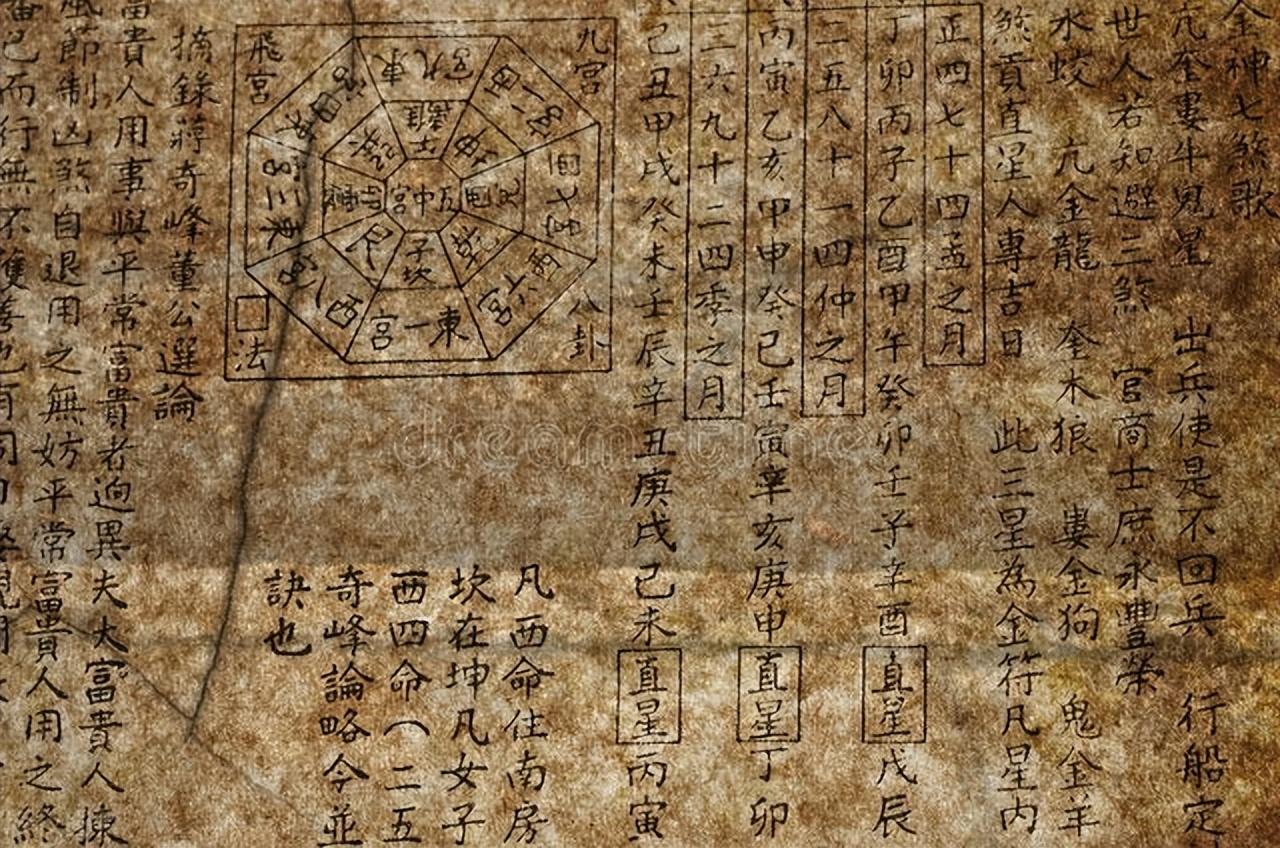 金神七煞歌
亢奎婁牛鬼星 出兵使是不回兵 行船定
世人若知避三煞 官商士庶永豐榮
水蛟 亢金龍 奎木狼 婁金狗 鬼金羊
煞貢直星人專吉日 此三星為金符凡星内
正四七十四孟之月
丁卯丙子乙酉甲午癸卯壬子辛酉 直星 戊辰
二五八十一四仲之月
丙寅乙亥甲申癸巳壬寅辛亥庚申 直星 丁卯
三六九十二四季之月
己丑甲戌癸未壬辰辛丑庚戌己未 直星 丙寅
九宮
八卦
飛宮
□法
五中宮
子坎
東一宮
西六宮
西八宮
東三宮
凡西命住南房
坎在坤凡女子
西四命(二五
奇峰論略今並
訣也
摘錄蔣奇峰董公選論
富貴人用事與平常富貴者逈異夫大富貴人揀
風節制凶煞自退用之無妨平常富貴人用之終
已而行無不獲善也有
dreamstime